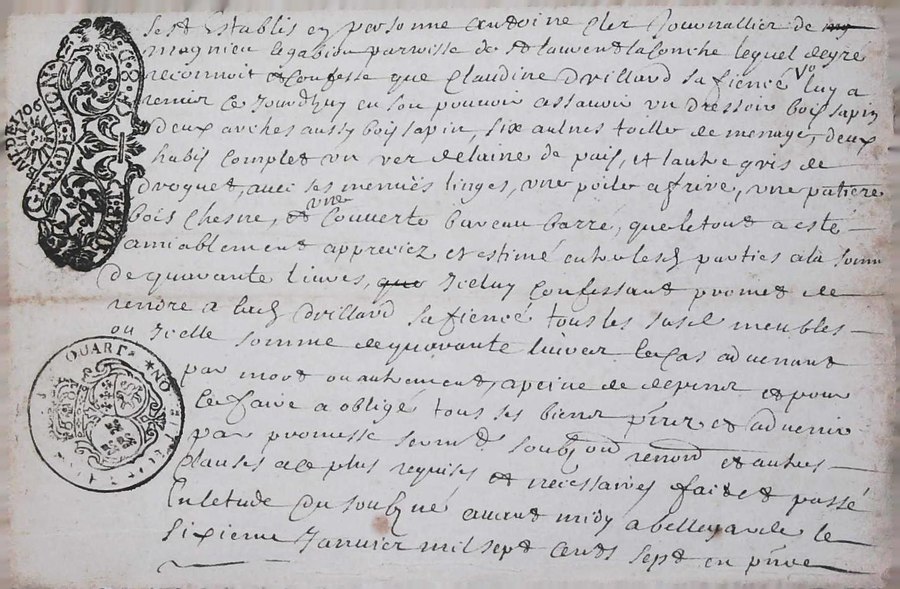 GEN. DE. LION
AN DE 1706
QUART
NO
sest Establis en personne antoine cler Journallier de
magnieu legabion parroisse de st laurent la conche lequel de gré
reconnoit et confesse que Claudine Drillard sa fiencé luy a
remis ce Jourdhuy en son pouvoir assavoir un dressoir bois sapin
deux arches aussy bois sapin, six aulnes toille de menage, deux
habis complet un ver de laine de pais, et lautre gris de
droguet, avec ses menuës linges, une poile a frire, une patiere
bois chesne, et une Couverte bureau barré, que le tout a esté
amiablement appreciez et estimé entre lesd parties a la somme
de quarante livres, que Iceluy Confessant promet de
rendre a lad Drillard sa fiencé tous les susd meubles
ou Icelle somme de quarante livres le cas advenant
par mort ou autrement, a peine de depens et pour
Ce faire a obligé tous ses biens pnts et advenir
par promesse serm soub renon et autres
Clauses a ce plus requises et necessaires fait et passé
En letude du soubné avant midy a bellegarde le
sixieme Janvier mil sept cents sept en pnce